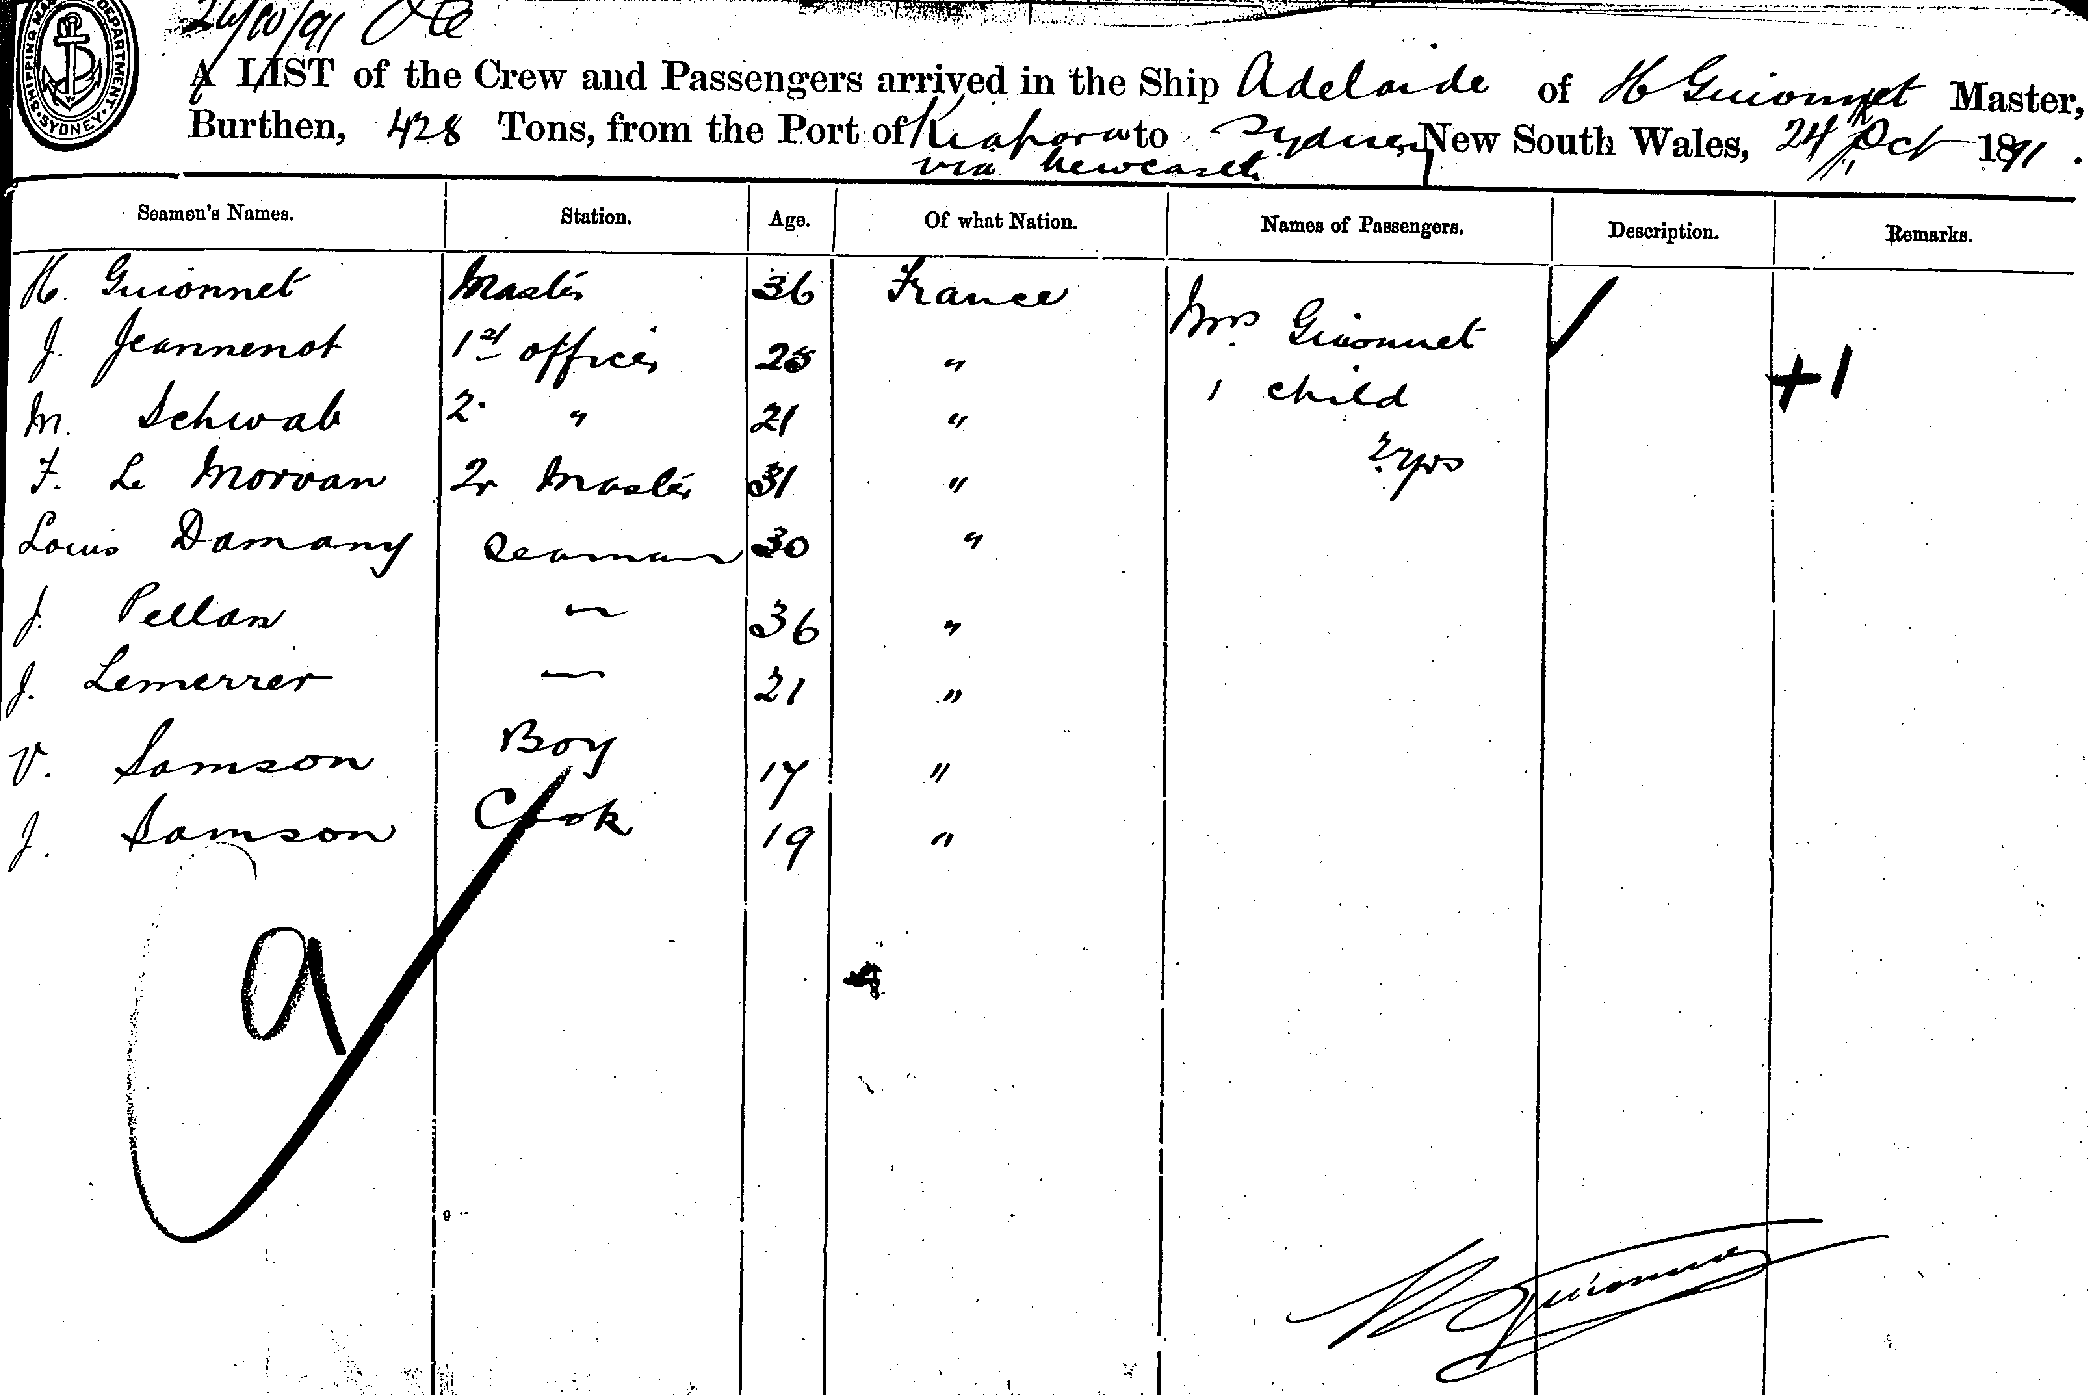 26/10/91
SHIPPING MA DEPARTMENT · SYDNEY ·
A LIST of the Crew and Passengers arrived in the Ship Adelaide of H Guionnet Master,
Burthen, 428 Tons, from the Port of Kiapara to Sydney New South Wales, 24 Oct 1891.
via Newcastle
Seamen's Names. Station. Age. Of what Nation. Names of Passengers. Description. Remarks.
H. Guionnet Master 36 France Mrs Guionnet
J. Jeannenot 1st officer 28 " 1 child +1
M. Schwab 2. " 21 " 2 yrs
F. Le Morvan 2r Master 31 "
Louis Damany Seaman 30 "
J. Pellan — 36 "
J. Lemerrer — 21 "
V. Samson Boy 17 "
J. Samson Cook 19 "
9
H Guionnet